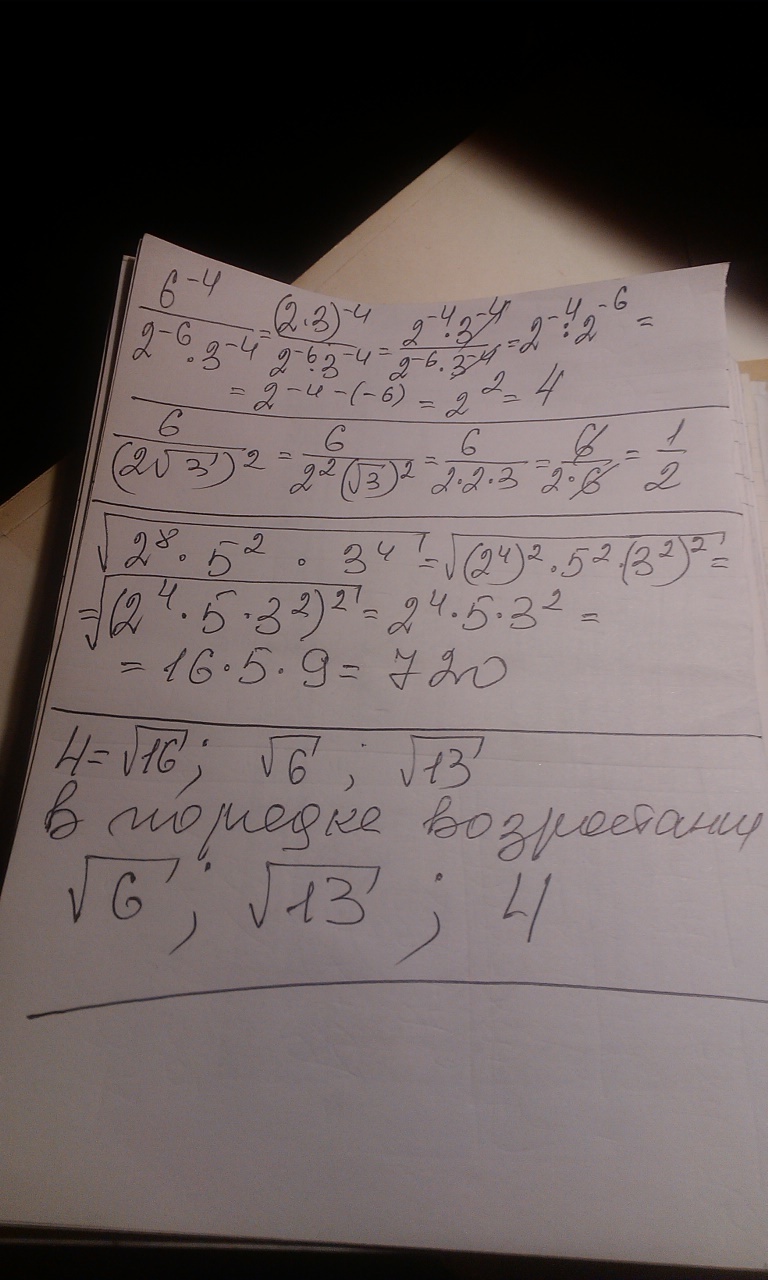 6⁻⁴/(2⁻⁶·3⁻⁴) = (2·3)⁻⁴/(2⁻⁶·3⁻⁴) = (2⁻⁴·3⁻⁴)/(2⁻⁶·3⁻⁴) = 2⁻⁴:2⁻⁶ =
= 2⁻⁴⁻⁽⁻⁶⁾ = 2² = 4
6/(2√3)² = 6/(2²(√3)²) = 6/(2·2·3) = 6/(2·6) = 1/2
√(2⁸·5²·3⁴) = √((2⁴)²·5²·(3²)²) =
= √((2⁴·5·3²)²) = 2⁴·5·3² =
= 16·5·9 = 720
4=√16; √6; √13
в порядке возростания
√6; √13; 4